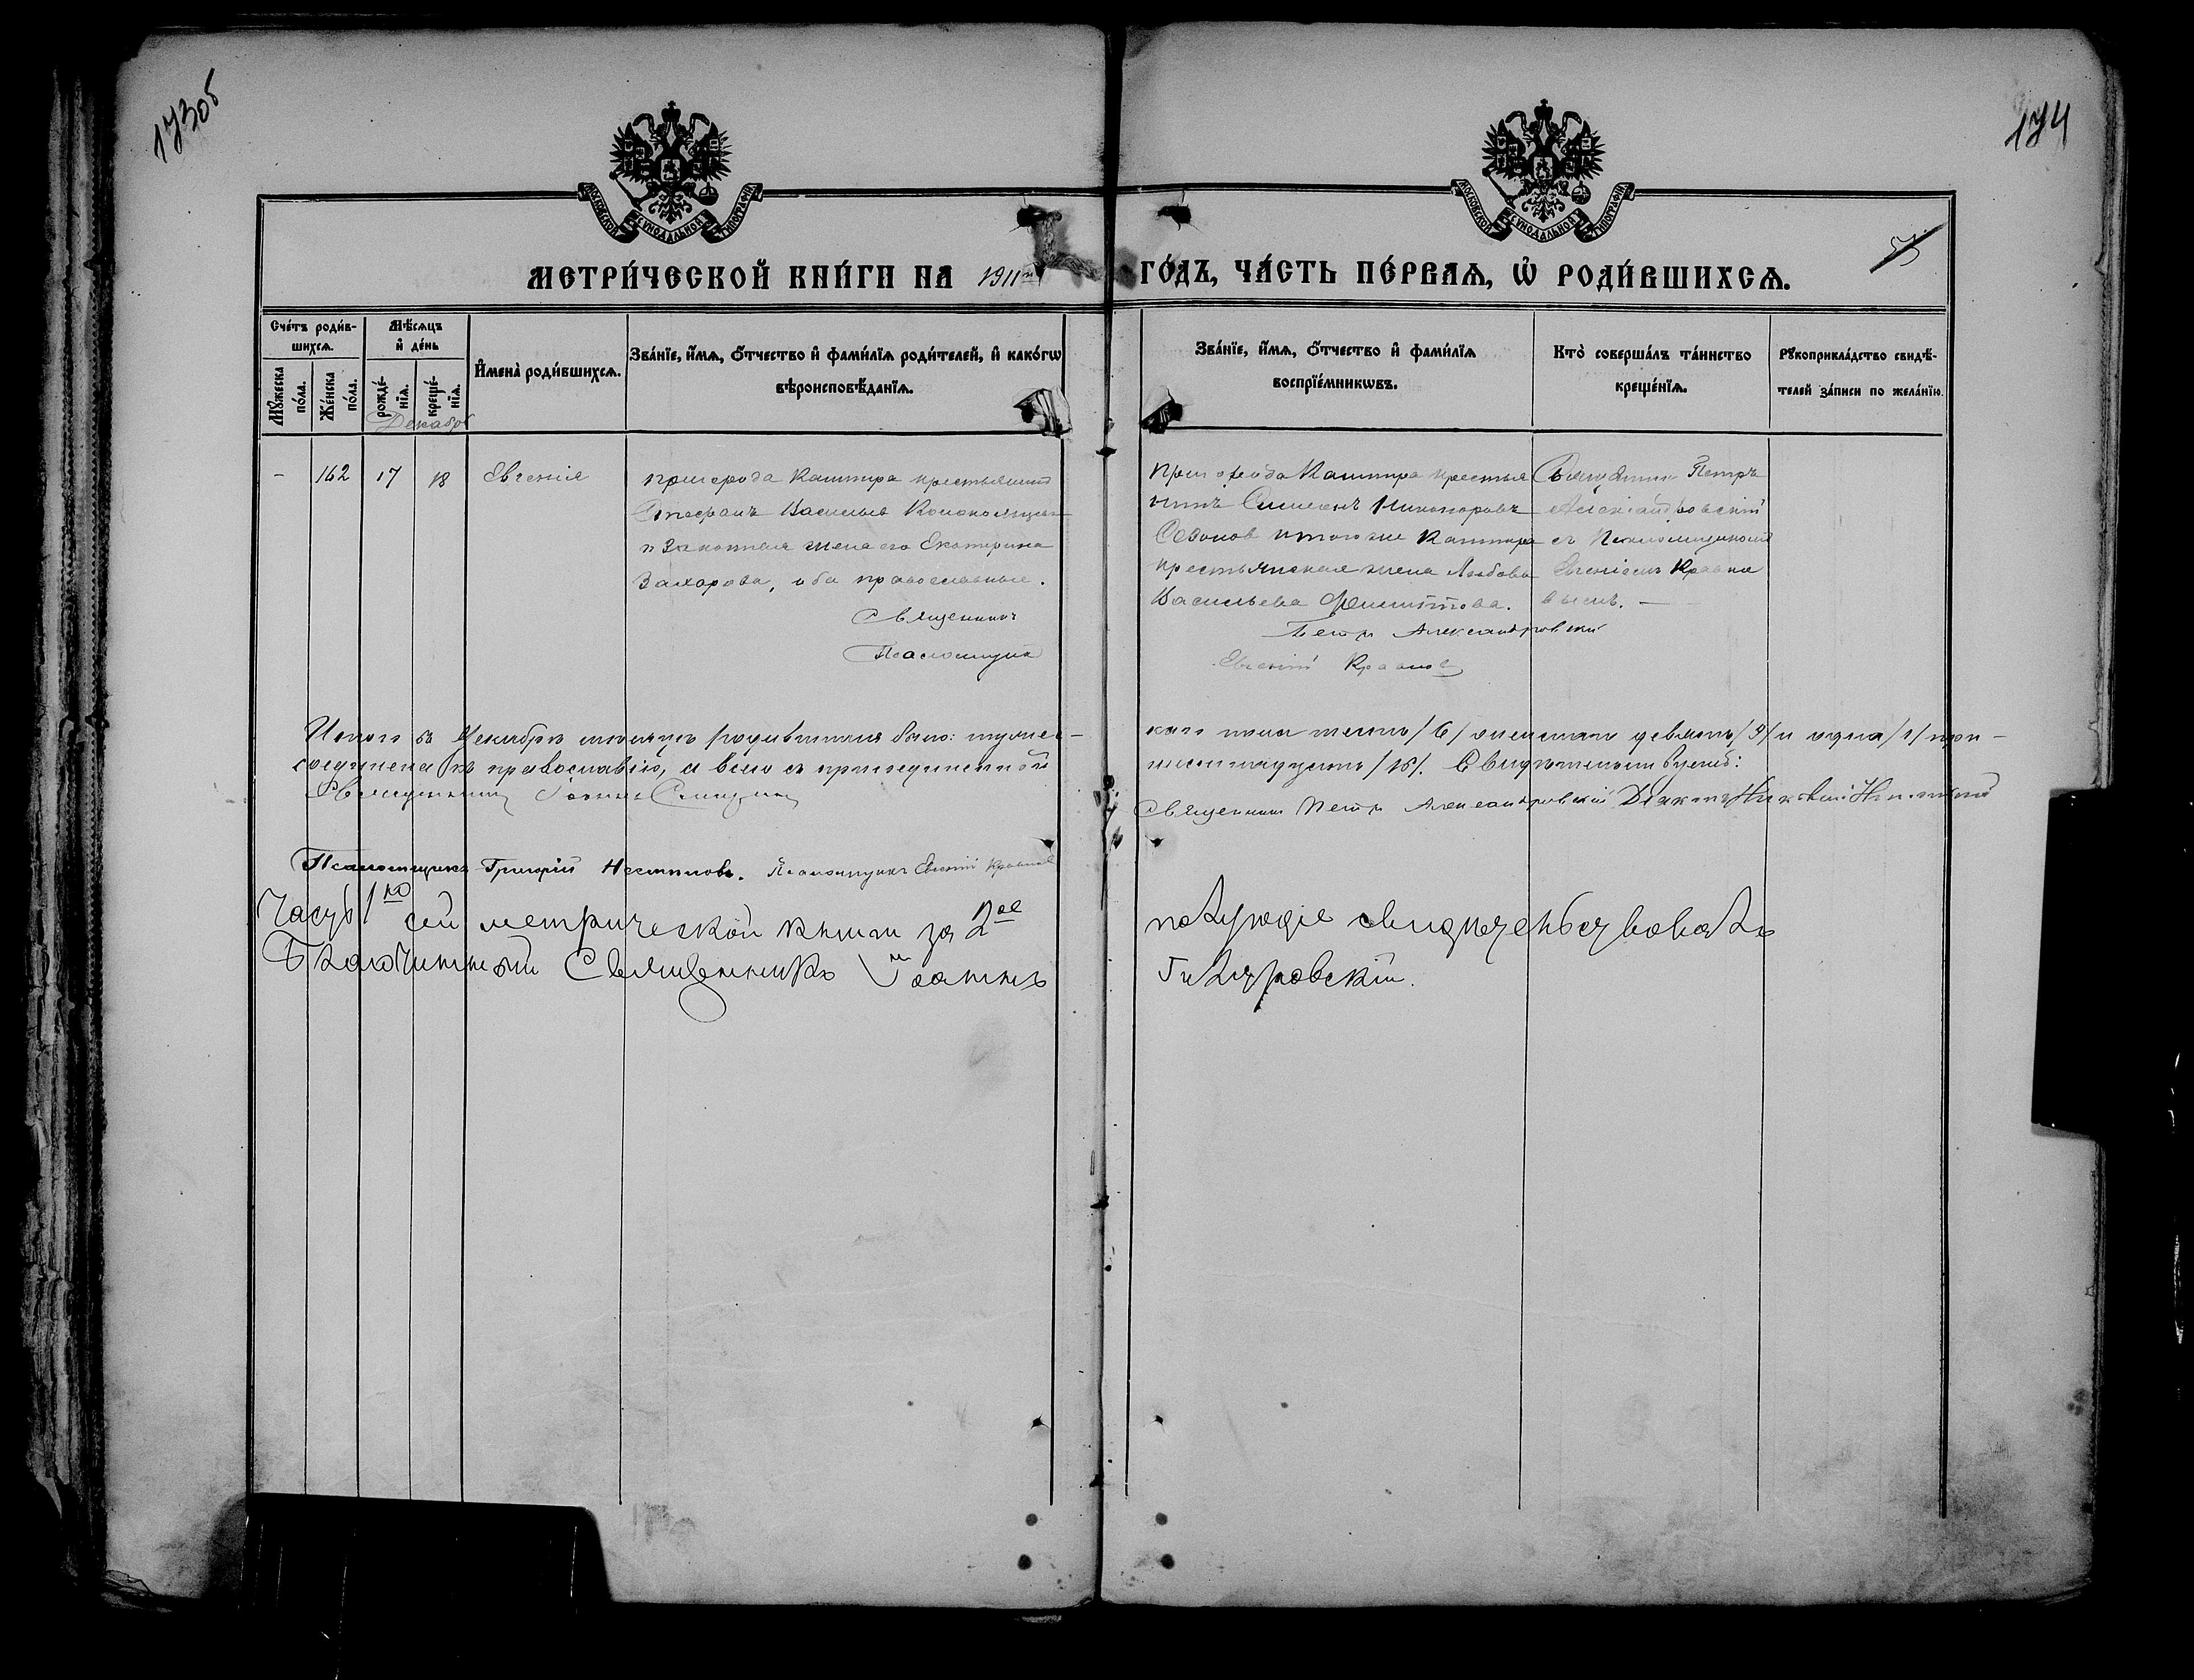 173об
174
МОСКОВСКОЙ СѴНОДАЛЬНОЙ ТИПОГРАФІИ
МОСКОВСКОЙ СѴНОДАЛЬНОЙ ТИПОГРАФІИ
МЕТРИ́ЧЕСКОЙ КНИ́ГИ НА 1911й
ГО́ДЪ, ЧА́СТЬ ПЕ́РВАѦ, Ѡ҆ РОДИ́ВШИХСѦ.
Сче́тъ роди́в-
шихсѧ.
Мꙋ́жеска по́ла.
Же́нска по́ла.
Мѣ́сѧцъ
и҆ де́нь
рожде́-
нїѧ.
креще́-
нїѧ.
Декабрь
И҆мена̀ роди́вшихсѧ.
Зва́нїе, и҆́мѧ, ѻ҆́тчество и҆ фами́лїѧ роди́телей, и҆ како́гѡ
вѣроисповѣ́данїѧ.
Зва́нїе, и҆́мѧ, ѻ҆́тчество и҆ фами́лїѧ
воспрїе́мникѡвъ.
Кто̀ соверша́лъ та́инство
креще́нїѧ.
Рꙋкоприкла́дство свидѣ́-
телей за́писи по жела́нїю.
- 162 17 18 Евгенія
пригорода Каштира крестьянинъ
Васильевъ
и законная жена его Екатерина
Захарова, оба православные.
Священникъ
Псаломщикъ
пригорода Каштира крестья
нинъ Симеонъ Никоноровъ
Сазонов и того же Каштира
крестьянская жена Любовь
Васильева Филиппова.
Петръ Александровскій
Евгеній
Священникъ Петръ
Александровскій
съ Псаломщикомъ
Евгеніемъ
вымъ. —
Итого въ Декабрѣ мѣсяцѣ родившихся было: мужес-
каго пола шесть /6/ женскаго девять /9/ и одна /1/ при-
соединена къ православію, а всего съ присоединенной
шестнадцать /16/. Свидѣтельствуемъ:
Священникъ
Священникъ Петръ Александровскій Діаконъ
Псаломщикъ Григорій Псаломщикъ Евгеній
Часть 1ю сей метрической книги за 2ое
полугодіе свидѣтельствовалъ
Благочинный Священникъ Іоаннъ